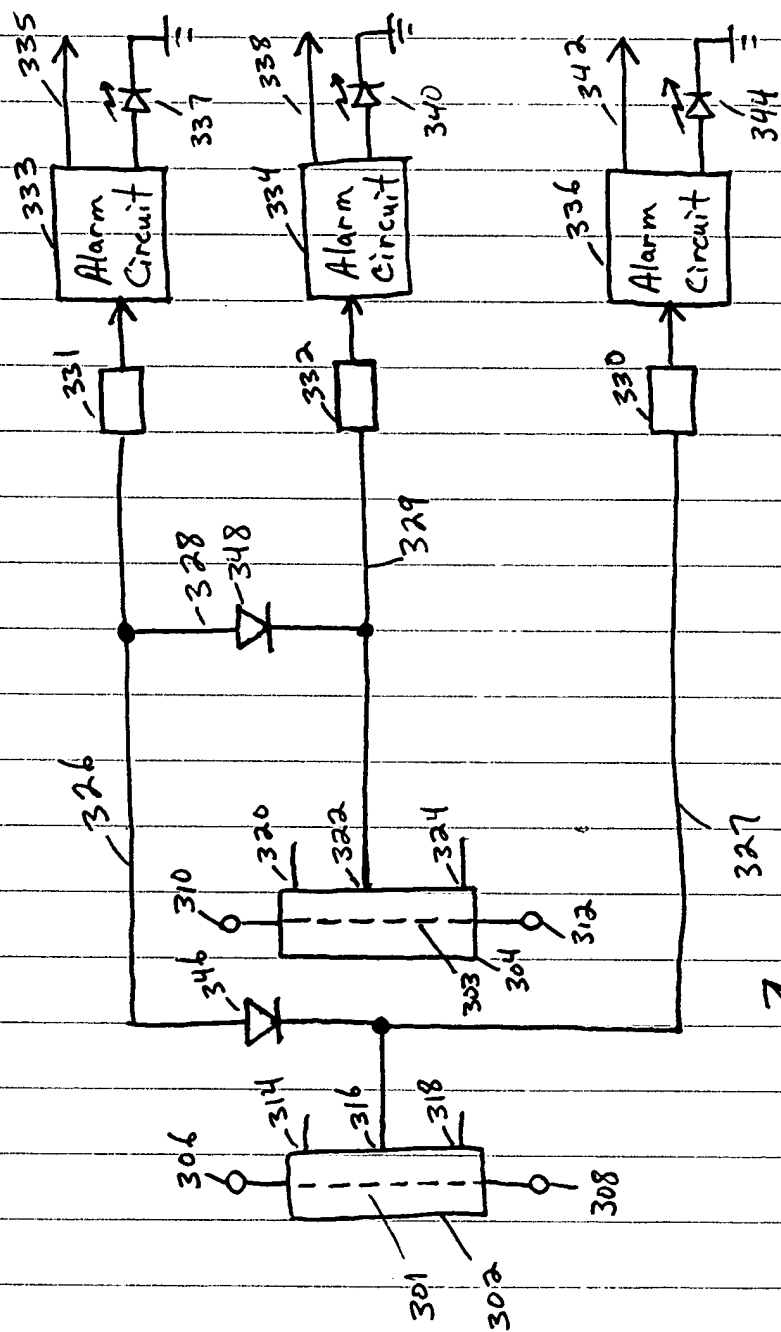 335
337
333
Alarm
Circuit
331
338
340
334
Alarm
Circuit
332
342
344
336
Alarm
Circuit
330
328
348
329
326
327
310
320
322
324
312
303
304
346
306
314
316
318
308
301
302